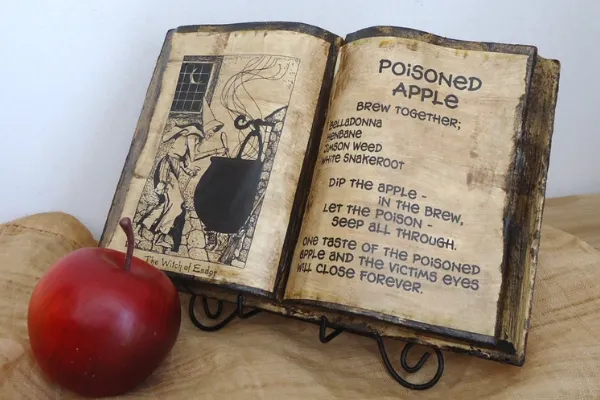 The Witch of Endor
Poisoned
Apple
Brew together;
Belladonna
Henbane
Jimson Weed
White Snakeroot
Dip the apple -
in the brew,
Let the poison -
seep all through.
One taste of the poisoned
apple and the victims eyes
will close forever.